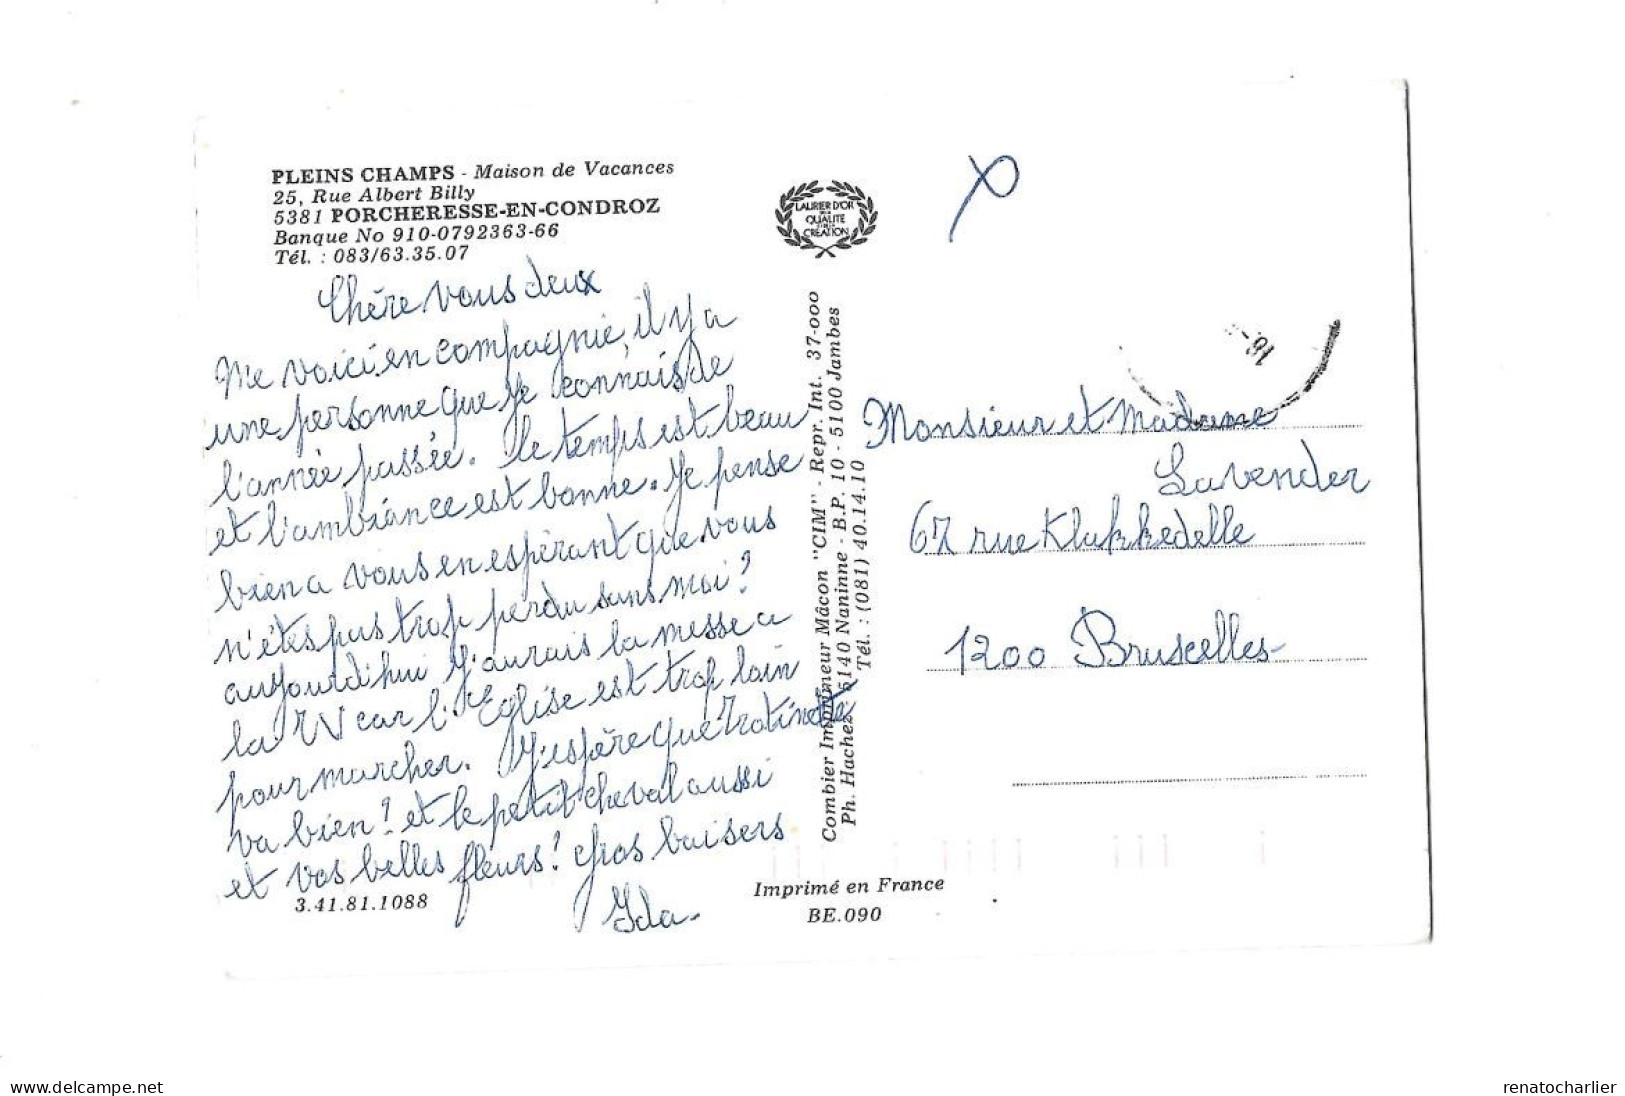 PLEINS CHAMPS - Maison de Vacances
25, Rue Albert Billy
5381 PORCHERESSE-EN-CONDROZ
Banque No 910-0792363-66
Tél. : 083/63.35.07
Chére vous deux
Me voici en compagnie, il y a
une personne que je connais de
l'année passée. le temps est beau
et l'ambiance est bonne. Je pense
bien a vous en espérant que vous
n'étes pas trop perdu sans moi?
aujourd'hui j'aurais la messe a
la TV car l'Eglise est trop loin
pour marcher. J'espère que Totinette
va bien? et le petit cheval aussi
et vos belles fleurs! Gros baisers
Ida.
3.41.81.1088
LAURIER D'OR
QUALITE
CREATION
Combier Imprimeur Mâcon "CIM" - Repr. Int. 37-000
Ph. Hachez 5140 Naninne - B.P. 10 - 5100 Jambes
Tél. : (081) 40.14.10
Imprimé en France
BE.090
Monsieur et Madame
Lavender
67 rue Klakkedelle
1200 Bruxelles-
renatocharlier